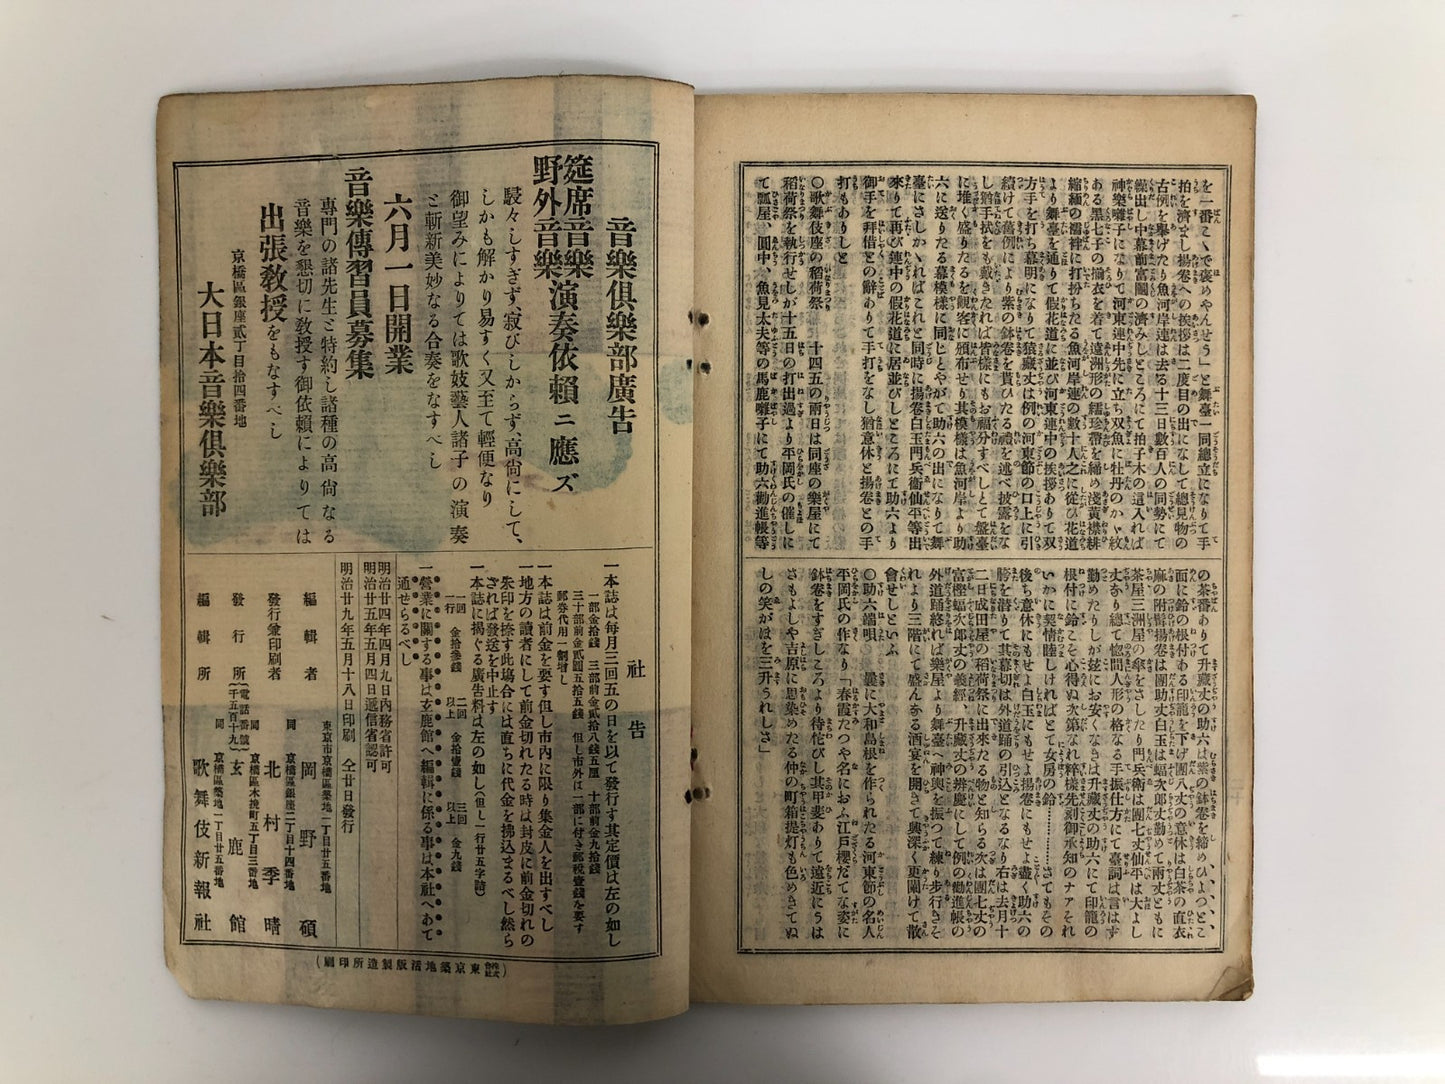 を一番こゝで褒めやんせう」と舞臺一同總立になりて手
拍を濟まし揚卷への挨拶は二度目の出になして總見物の
古例を擧げたり魚河岸連は去る十三日數百人の同勢にて
繰出し中幕前富圖の濟みしところにて拍子木の這入れば
神樂囃子になりて河東連中先に立ち双魚に牡丹のかゝ紋
ある黒七子の揃衣を着て遠洲形の繻珍帶を締め淺黄襟緋
縮緬の濡裨に打扮ちたる魚河岸連の數十人之に從ひ花道
より舞臺を通りて假花道に並び河東連中の挨拶ありて双
方手を打ち幕明になりて猿藏丈は例の河東節の口上に引
續けて舊例により紫の鉢卷を貰ひたる禮を述べ披露をな
し猶手拭をも戴きたれば皆樣にもお福分すべしとて盤臺
に堆く盛りたるを觀客に頒布せり其模樣は魚河岸より助
六に送りたる幕模樣に同じとやがて助六の出になりて舞
臺にさしかゝればこれと同時に揚卷白玉門兵衞仙平等出
來りて再び連中の假花道に居並びしところにて助六より
御手を拜借との辭ありて手打をなし猶意休と揚卷との手
打もありしと
〇歌舞伎座の稻荷祭　十四五の兩日は同座の樂屋にて
稻荷祭を執行せしが十五日の打出過より平岡氏の催しに
て瓢屋、圓中、魚見太夫等の馬鹿囃子にて助六勸進帳等
の茶番ありて升藏丈の助六は紫の鉢卷を締めひよつとこ
面に鈴の根付ある印籠を下げ團八丈の意休は白茶の直衣
麻の附髯揚卷は團助丈白玉は蝠次郎丈勤めて兩丈ともに
茶屋三洲屋の傘をさしたり門兵衞は團七丈仙平は大よし
丈なり總て惚間人形の格なる手振仕方にて臺詞は言はず
勤めたりしが玆にお安くなきは升藏丈の助六にて印籠の
根付に鈴こそ心得ぬ次第なれ粹樣先刻御承知のナァそれ
いかに契情睦しければとて女房の鈴…………さてもその
後ち意休にもせよ白玉にもせよ揚卷にもせよ盡く助六の
胯を潜りて其幕切は外道踊の引込となるなり右は去月十
二日成田屋の稻荷祭に出來たる物と知らる次は團七丈の
富樫蝠次郎丈の義經、升藏丈の辨慶にして例の勸進帳の
外道踊終れば樂屋より舞臺へ神輿を振つて練り步行きそ
れより三階にて盛んなる酒宴を開きて興深く更闌けて散
會せしといふ
〇助六端唄　曩に大和島根を作られたる河東節の名人
平岡氏の作なり「春霞たつや名におふ江戸櫻だてな姿に
鉢卷をすぎしころより待侘びし其甲斐ありて遠近にうは
さもよしや吉原に思染めたる仲の町箱提灯も色めきてぬ
しの笑がほを三升うれしさ」
音樂俱樂部廣告
筵席音樂
野外音樂
演奏依賴ニ應ズ
騷々しすぎず、寂びしからず、高尙にして、
しかも解かり易すく又至て輕便なり
御望みによりては歌妓藝人諸子の演奏
と斬新美妙なる合奏をなすべし
六月一日開業
音樂傳習員募集
專門の諸先生と特約し諸種の高尙なる
音樂を懇切に敎授す御依賴によりては
出張敎授をもなすべし
京橋區銀座貳丁目拾四番地
大日本音樂俱樂部
社告
一本誌は每月三回五の日を以て發行す其定價は左の如し
一部金拾錢　三部前金貳拾八錢五厘　十部前金九拾錢
三十部前金貳圓五拾五錢　但し市外は一部に付き郵稅壹錢を要す
郵券代用一割增し
一本誌は前金を要す但し市內に限り集金人を出すべし
一地方の讀者にして前金切れたる時は封皮に前金切れの
朱印を捺す此場合には直ちに代金を拂込まるべし然ら
ざれば發送を中止す
一本誌に揭ぐる廣告料は左の如し但し一行廿五字詰
一回一行　金拾參錢　二回以上　金拾壹錢　三回以上　金九錢
一營業に關する事は玄鹿館へ編輯に係る事は本社へあて
通せらるべし
明治廿四年四月九日內務省許可
明治廿五年五月四日遞信省認可
明治廿九年五月十八日印刷　仝廿日發行
東京市京橋區築地一丁目廿五番地
編輯者　岡野碩
京橋區銀座二丁目十四番地
發行兼印刷者　同　北村季晴
京橋區木挽町五丁目三番地
發行所　（電話番號千五百十九）　同　玄鹿館
京橋區築地一丁目廿五番地
編輯所　同　歌舞伎新報社
（株式會社東京築地活版製造所印刷）